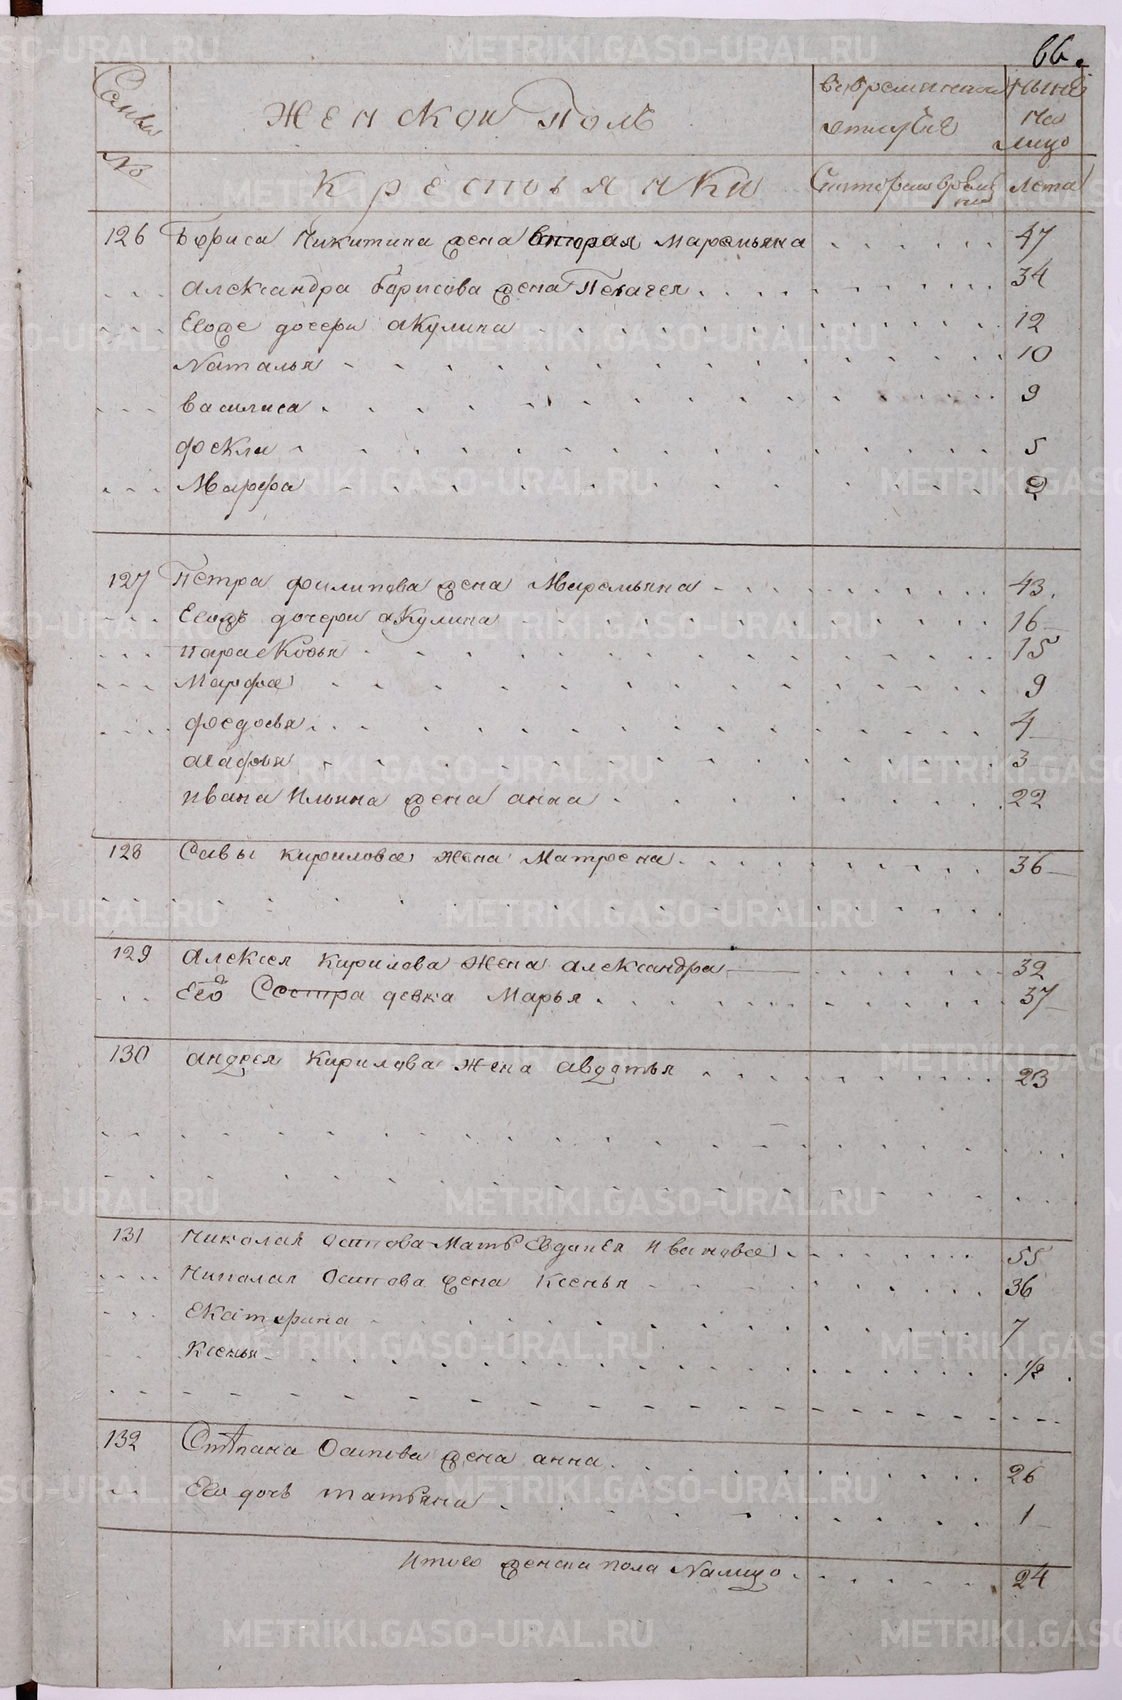 66.
Семьи
Женской Полъ
во временной отлучке
ныне на лицо
№
Крестьянки
Скоторого времени
Лета
126 Бориса Никитина жена вторая Маремьяна 47
Александра Борисова жена Пелагея 34
Еводне дочери акулина 12
Наталья 10
василиса 9
фекла 5
Марфа 2
127 Петра филипова жена Маремьяна 43.
Еводъ дочери акулина 16
парасковья 15
Марфа 9
федосья 4
агафья 3
ивана Ильина жена анна 22
128 Савы кирилова жена Матрена 36
129 Алексея Кирилова жена александра 32
Его Сестра девка Марья 37
130 андрея Кирилова жена авдотья 23
131 Николая осипова Мать Евдокея Иванова 55
Николая Осипова жена Ксенья 36
Екатерина 7
Ксенья 1/2
132 Степана Осипова жена анна 26
Его дочь татьяна 1
Итого женска пола Налицо 24
METRIKI.GASO-URAL.RU